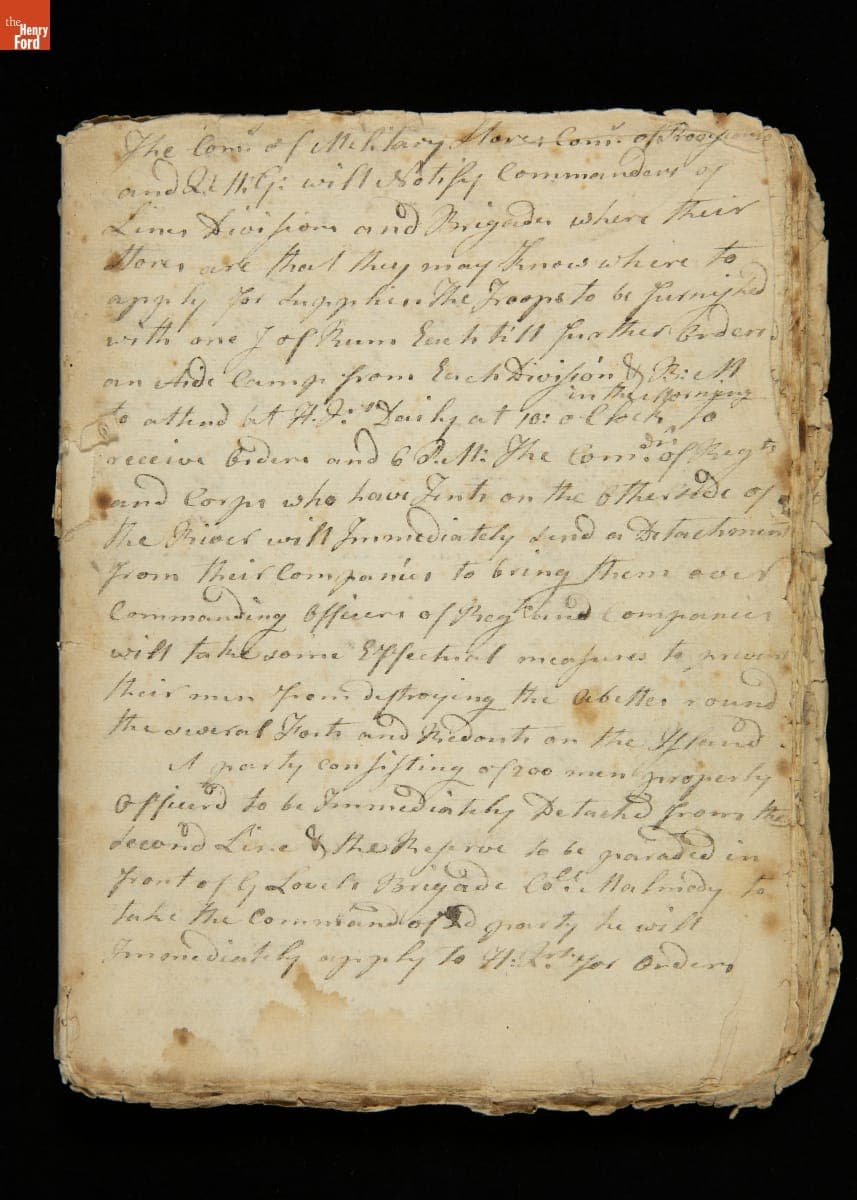 the
Henry
Ford
The Com.y of Military Stores Com.y of
and Q: M: G: will Notify Commanders of
Lines Divisions and Brigades where their
Stores are that they may Know where to
apply for Supplies. The Troops to be furnished
with one J of Rum Each till further Orders
an Aide Camp from Each Division & B: M
in the Morning
to attend at H. Q:rs Daily at 10: oClock to
receive Orders and 6 P.M: The Com:drs of Regts
and Corps who have Tents on the Other side of
the River will Immediately send a Detachment
from their Companies to bring them over
Commanding Officers of Regt and Companies
will take some Effectual measures to prevent
their men from destroying the Abettes round
the several Forts and Redouts on the Island
A party consisting of 200 men properly
Officerd to be Immediately Detachd from the
Second Line & the Reserve to be paraded in
front of G Lovels Brigade Colo. Malmedy to
take the Command of sd party he will
Immediately apply to H: Qrs for Orders